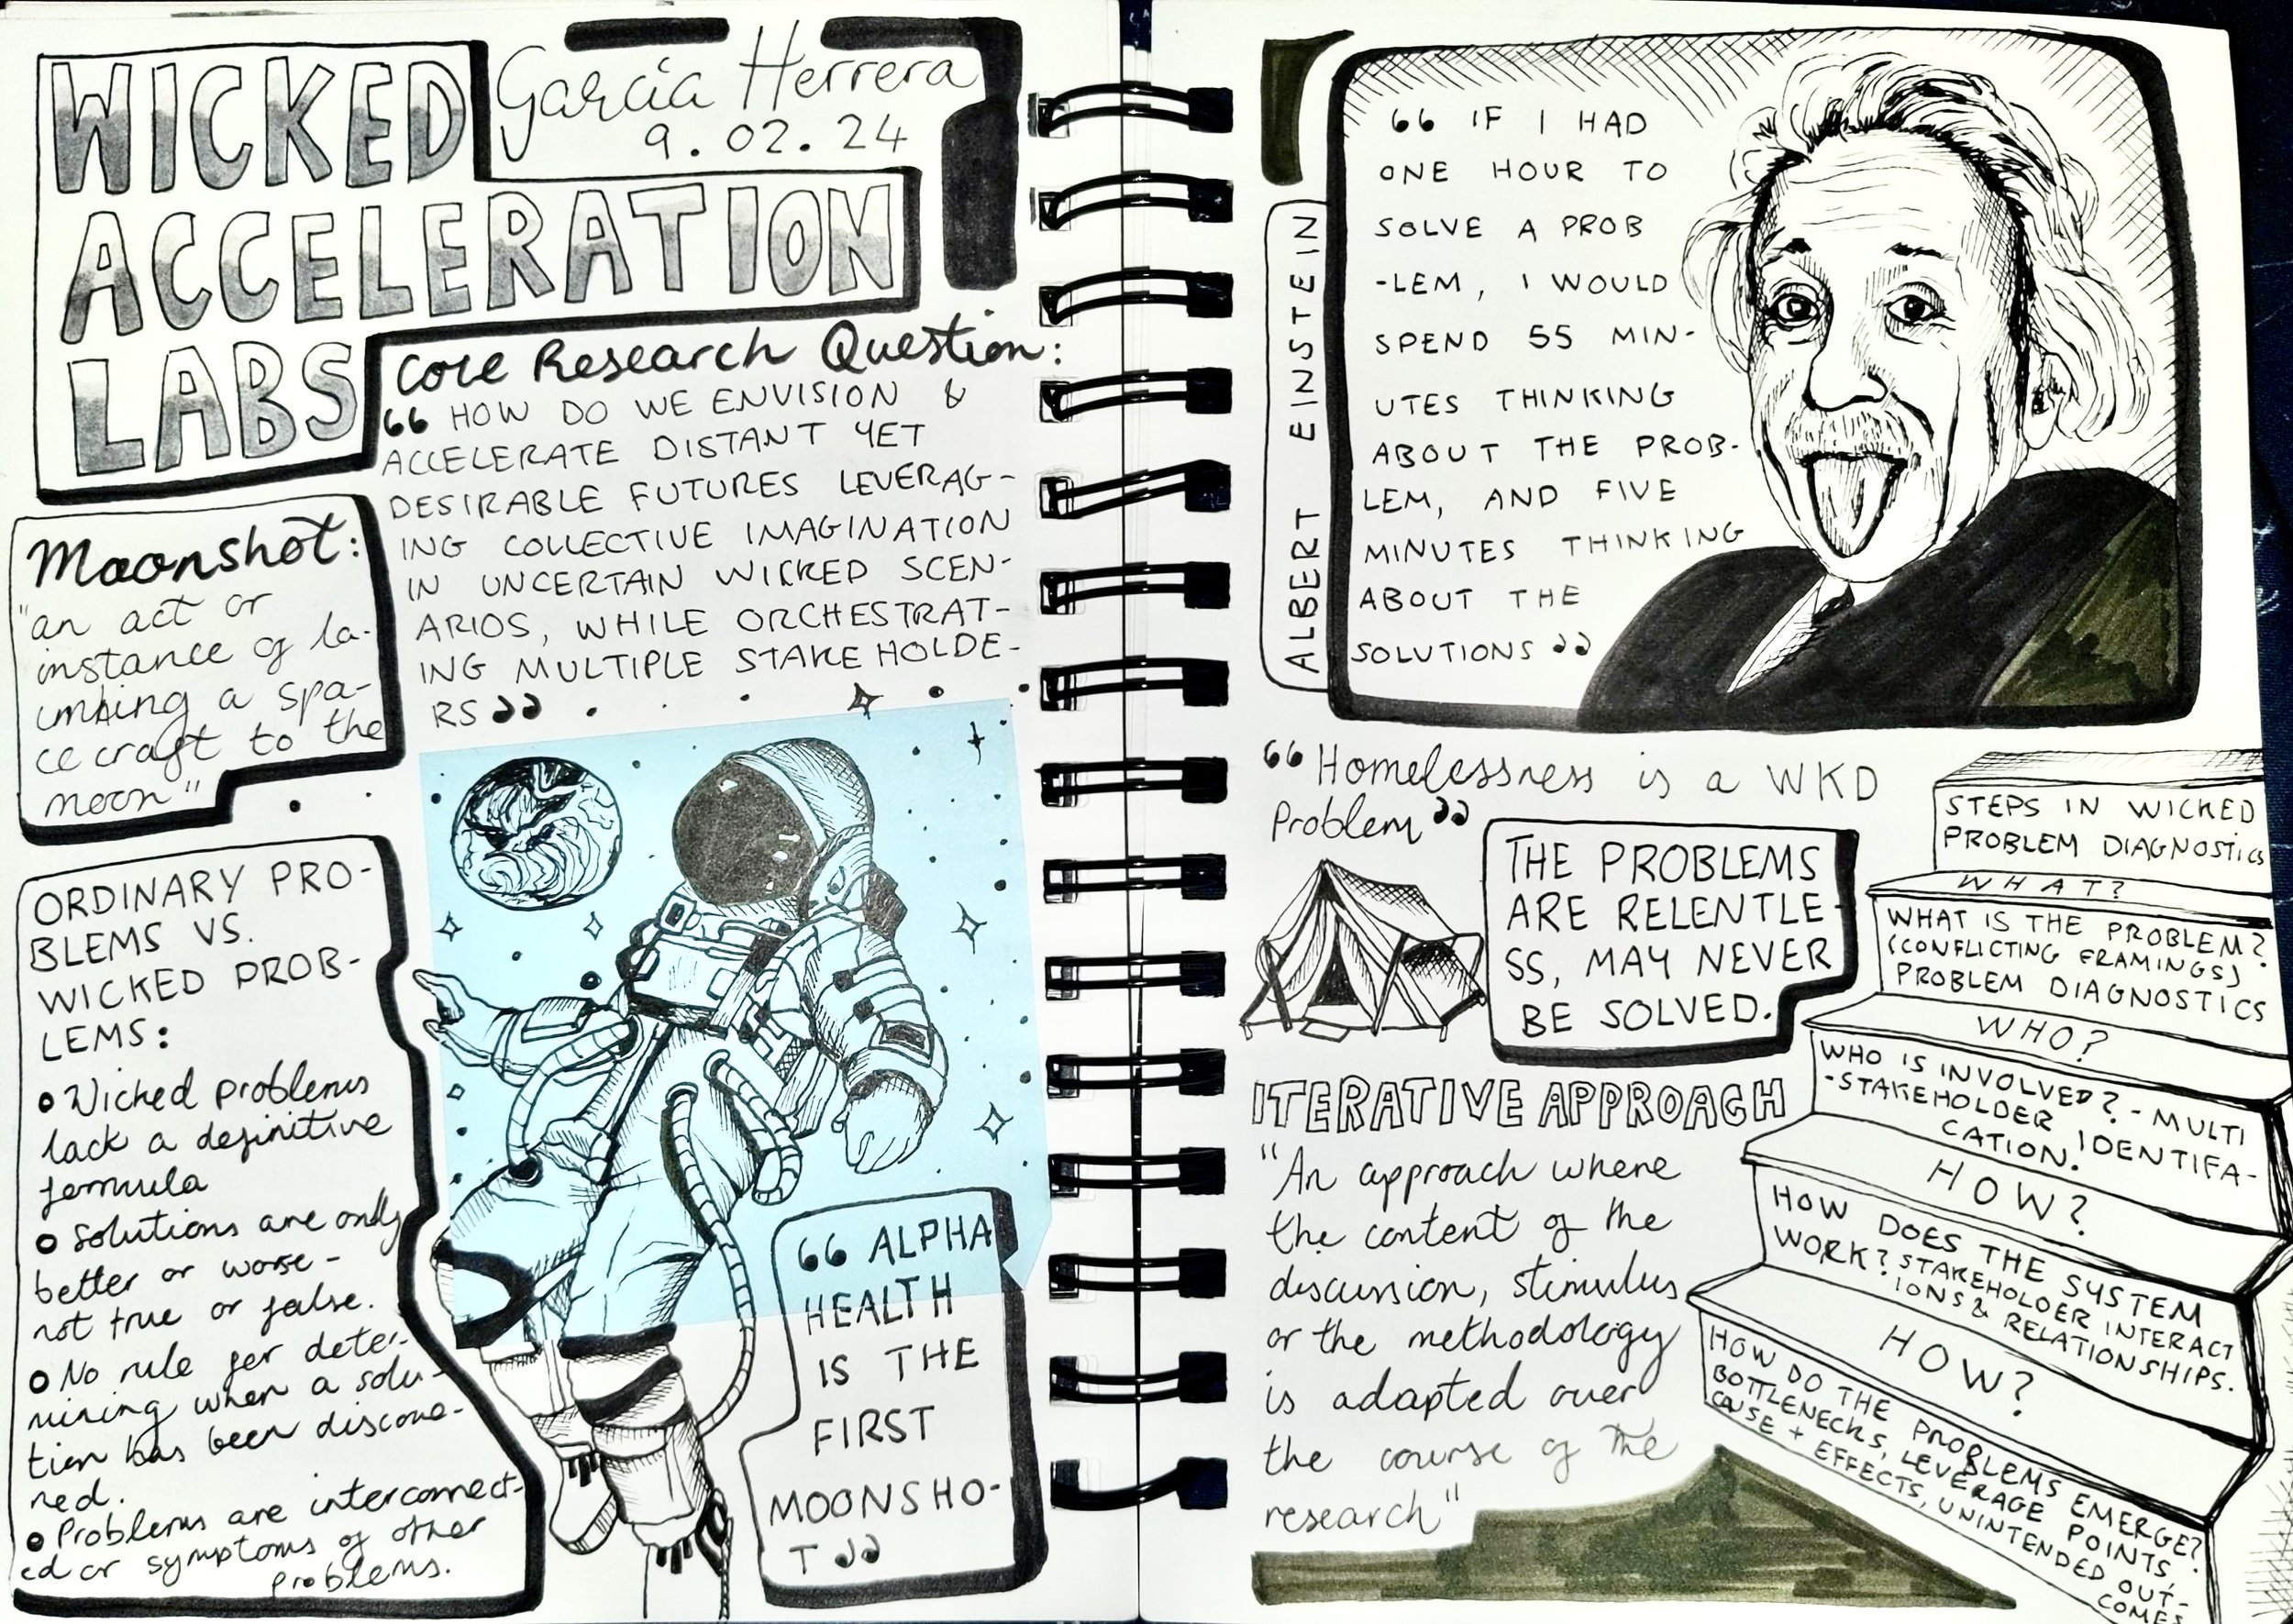 WICKED
ACCELERATION
LABS
García Herrera
9.02.24
Core Research Question:
“ HOW DO WE ENVISION &
ACCELERATE DISTANT YET
DESIRABLE FUTURES LEVERAG-
ING COLLECTIVE IMAGINATION
IN UNCERTAIN WICKED SCEN-
ARIOS, WHILE ORCHESTRAT-
ING MULTIPLE STAKEHOLDE-
RS ”
Moonshot:
"an act or
instance of la-
unching a spa-
cecraft to the
moon"
ORDINARY PRO-
BLEMS VS.
WICKED PROB-
LEMS:
• Wicked problems
lack a definitive
formula
• Solutions are only
better or worse -
not true or false.
• No rule for deter-
mining when a solu-
tion has been discove-
red.
• Problems are interconnect-
ed or symptoms of other
problems.
“ ALPHA
HEALTH
IS THE
FIRST
MOONSHO-
T ”
ALBERT EINSTEIN
“ IF I HAD
ONE HOUR TO
SOLVE A PROB
-LEM, I WOULD
SPEND 55 MIN-
UTES THINKING
ABOUT THE PROB-
LEM, AND FIVE
MINUTES THINKING
ABOUT THE
SOLUTIONS ”
“ Homelessness is a WKD
Problem ”
THE PROBLEMS
ARE RELENTLE-
SS, MAY NEVER
BE SOLVED.
ITERATIVE APPROACH
"An approach where
the content of the
discussion, stimulus
or the methodology
is adapted over
the course of the
research"
STEPS IN WICKED
PROBLEM DIAGNOSTICS
WHAT?
WHAT IS THE PROBLEM?
(CONFLICTING FRAMINGS)
PROBLEM DIAGNOSTICS
WHO?
WHO IS INVOLVED? - MULTI
-STAKEHOLDER IDENTIFA-
CATION.
HOW?
HOW DOES THE SYSTEM
WORK? STAKEHOLDER INTERACT
IONS & RELATIONSHIPS.
HOW?
HOW DO THE PROBLEMS EMERGE?
BOTTLENECKS, LEVERAGE POINTS
CAUSE + EFFECTS, UNINTENDED OUT-
COMES